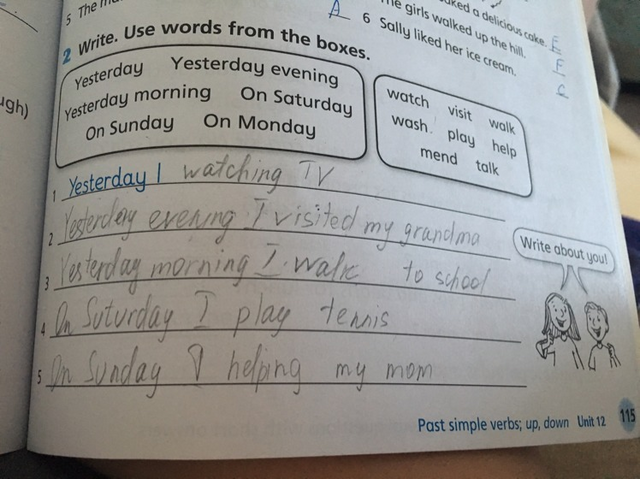 5 The
A
ked a delicious cake. E
he girls walked up the hill. F
6 Sally liked her ice cream. C
2 Write. Use words from the boxes.
Yesterday Yesterday evening
Yesterday morning On Saturday
On Sunday On Monday
watch visit walk
wash play help
mend talk
ugh)
1 Yesterday I watching TV
2 Yesterday evening I visited my grandma
3 Yesterday morning I walk to school
4 On Suturday I play tennis
5 On Sunday I helping my mom
Write about you!
Past simple verbs; up, down Unit 12 115